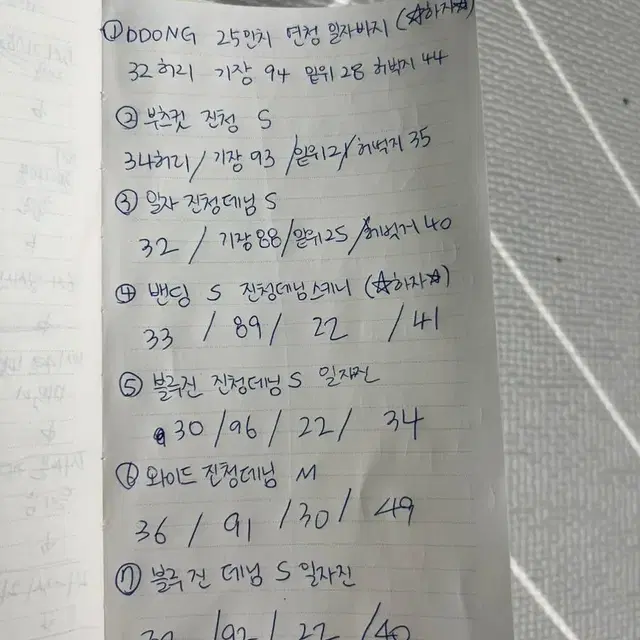 ① DDONG 25인치 연청 일자바지 (☆하자☆)
32허리 기장 94 밑위 28 허벅지 44
② 부츠컷 진청 S
34허리 / 기장 93 / 밑위21 / 허벅지 35
③ 일자 진청데님 S
32 / 기장 88 / 밑위 25 / 허벅지 40
④ 밴딩 S 진청데님 스키니 (☆하자☆)
33 / 89 / 22 / 41
⑤ 블루진 진청데님 S 일자진
30 / 96 / 22 / 34
⑥ 와이드 진청데님 M
36 / 91 / 30 / 49
⑦ 블루진 데님 S 일자진
/ 92 / 22 / 40